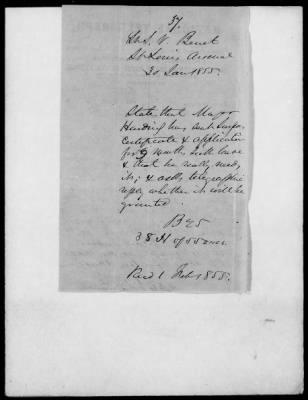 37.
Lt. S. V. Benet
St. Louis Arsenal
30 Jan 1855.
States that Major
has sent Surgeons
Certificate & application
for 9 months sick leave
& that he really needs
it; & asks telegraphic
reply whether it will be
granted.
B 25
38 H of 55
Recd 1 Feb 1855.